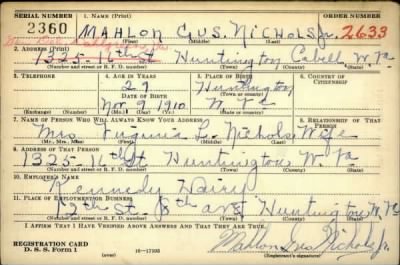 SERIAL NUMBER 1. NAME (Print) ORDER NUMBER
2360 MAHLON GUS. NICHOLS Jr. 2633
(First) (Middle) (Last)
2. ADDRESS (Print)
1325-16th St Huntington Cabell W. Va
(Number and street or R. F. D. number) (Town) (County) (State)
3. TELEPHONE 4. AGE IN YEARS 5. PLACE OF BIRTH 6. COUNTRY OF CITIZENSHIP
29 Huntington
DATE OF BIRTH (Town or county)
Nov. 9 1910 W. Va
(Exchange) (Number) (Mo.) (Day) (Yr.) (State or country)
7. NAME OF PERSON WHO WILL ALWAYS KNOW YOUR ADDRESS 8. RELATIONSHIP OF THAT PERSON
Mrs Virginia L. Nichols Wife
(Mr., Mrs., Miss) (First) (Middle) (Last)
9. ADDRESS OF THAT PERSON
1325-16th St Huntington W. Va
(Number and street or R. F. D. number) (Town) (County) (State)
10. EMPLOYER'S NAME
Kennedy Dairy
11. PLACE OF EMPLOYMENT OR BUSINESS
12th St. 8th ave Huntington W. Va
(Number and street or R. F. D. number) (Town) (County) (State)
I AFFIRM THAT I HAVE VERIFIED ABOVE ANSWERS AND THAT THEY ARE TRUE.
REGISTRATION CARD
D. S. S. Form 1 16-17105 Mahlon Gus Nichols Jr.
(Registrant's signature)